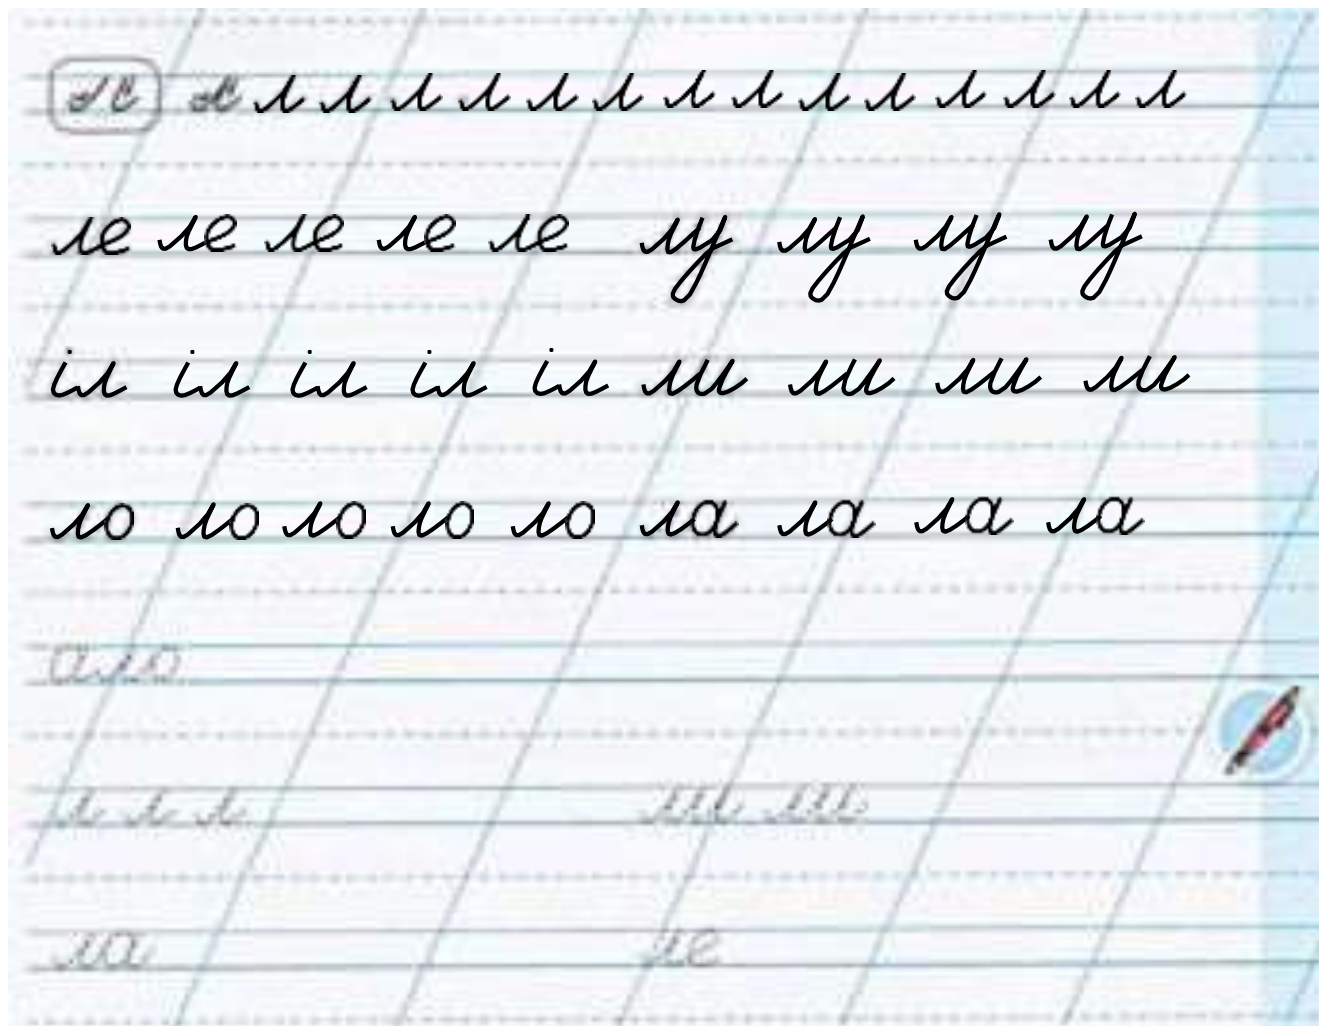 л л л л л л л л л л л л л л
ле ле ле ле ле лу лу лу лу
іл іл іл іл іл ли ли ли ли
ло ло ло ло ло ла ла ла ла
ало
л л л ли ли
ла ле